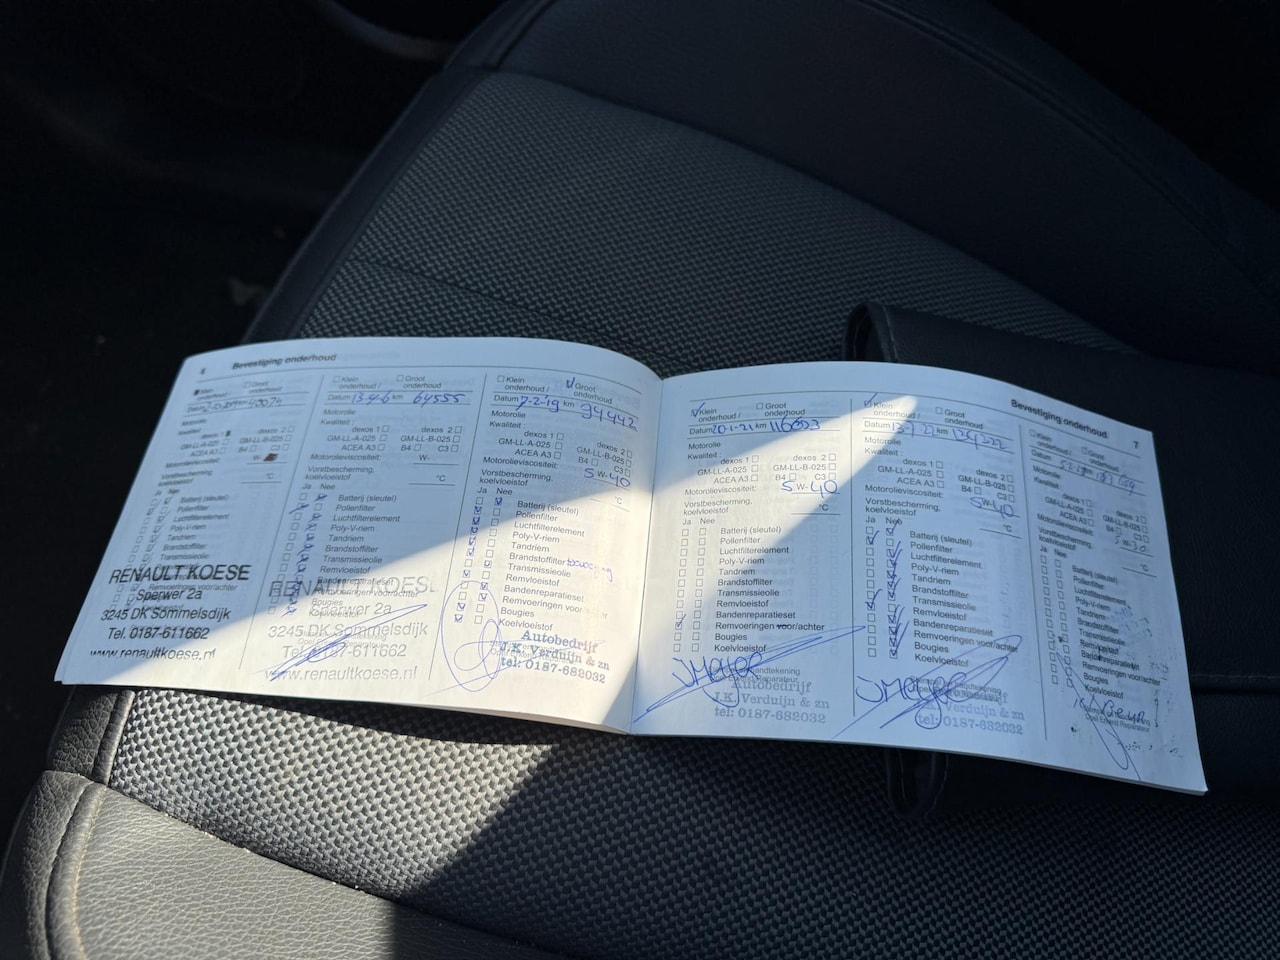 4 Bevestiging onderhoud
Klein onderhoud / Groot onderhoud
Datum km 40074
Motorolie
Kwaliteit
dexos 1 dexos 2
GM-LL-A-025 GM-LL-B-025
ACEA A3 B4 C3
Motorolieviscositeit: W-
Vorstbescherming,
koelvloeistof °C
Ja Nee
Batterij (sleutel)
Pollenfilter
Luchtfilterelement
Poly-V-riem
Tandriem
Brandstoffilter
Transmissieolie
Remvloeistof
RENAULT KOESE
Sperwer 2a
3245 DK Sommelsdijk
Tel. 0187-611662
www.renaultkoese.nl
Klein onderhoud / Groot onderhoud
Datum km 64555
Motorolie
Kwaliteit
dexos 1 dexos 2
GM-LL-A-025 GM-LL-B-025
ACEA A3 B4 C3
Motorolieviscositeit: W-
Vorstbescherming,
koelvloeistof °C
Ja Nee
Batterij (sleutel)
Pollenfilter
Luchtfilterelement
Poly-V-riem
Tandriem
Brandstoffilter
Transmissieolie
Remvloeistof
Bandenreparatieset
Remvoeringen voor/achter
Bougies
Koelvloeistof
Sperwer 2a
3245 DK Sommelsdijk
Tel. 0187-611662
www.renaultkoese.nl
Klein onderhoud / Groot onderhoud
Datum 7-2-19 km 94442
Motorolie
Kwaliteit
dexos 1 dexos 2
GM-LL-A-025 GM-LL-B-025
ACEA A3 B4 C3
Motorolieviscositeit: 5 W-40
Vorstbescherming,
koelvloeistof °C
Ja Nee
Batterij (sleutel)
Pollenfilter
Luchtfilterelement
Poly-V-riem
Tandriem
Brandstoffilter
Transmissieolie
Remvloeistof
Bandenreparatieset
Remvoeringen voor/achter
Bougies
Koelvloeistof
Autobedrijf
J.K. Verduijn & zn
tel: 0187-682032
Klein onderhoud / Groot onderhoud
Datum 20-1-21 km
Motorolie
Kwaliteit :
dexos 1 dexos 2
GM-LL-A-025 GM-LL-B-025
ACEA A3 B4 C3
Motorolieviscositeit: 5 W-40
Vorstbescherming,
koelvloeistof °C
Ja Nee
Batterij (sleutel)
Pollenfilter
Luchtfilterelement
Poly-V-riem
Tandriem
Brandstoffilter
Transmissieolie
Remvloeistof
Bandenreparatieset
Remvoeringen voor/achter
Bougies
Koelvloeistof
Autobedrijf
J.K. Verduijn & zn
tel: 0187-682032
Bevestiging onderhoud 7
Klein onderhoud / Groot onderhoud
Datum km
Motorolie
Kwaliteit :
dexos 1 dexos 2
GM-LL-A-025 GM-LL-B-025
ACEA A3 B4 C3
Motorolieviscositeit: 5 W-40
Vorstbescherming,
koelvloeistof °C
Ja Nee
Batterij (sleutel)
Pollenfilter
Luchtfilterelement
Poly-V-riem
Tandriem
Brandstoffilter
Transmissieolie
Remvloeistof
Bandenreparatieset
Remvoeringen voor/achter
Bougies
Koelvloeistof
Verduijn & zn
tel: 0187-682032
Klein onderhoud / Groot onderhoud
Datum km
Motorolie
Kwaliteit
dexos 1 dexos 2
GM-LL-A-025 GM-LL-B-025
ACEA A3 B4 C3
Motorolieviscositeit: 5 W-30
Vorstbescherming,
koelvloeistof °C
Ja Nee
Batterij (sleutel)
Pollenfilter
Luchtfilterelement
Poly-V-riem
Tandriem
Brandstoffilter
Transmissieolie
Remvloeistof
Bandenreparatieset
Remvoeringen voor/achter
Bougies
Koelvloeistof
Opel Erkend Reparateur